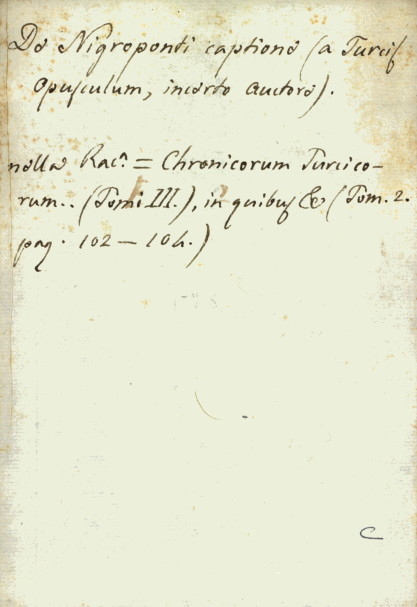 De Nigroponti captione (a Turcis
Opusculum, incerto auctore).
nella Racc.ª = Chronicorum Turcico-
rum.. (Tomi III.), in quibus &c (Tom. 2.
pag. 102 — 104.)
C